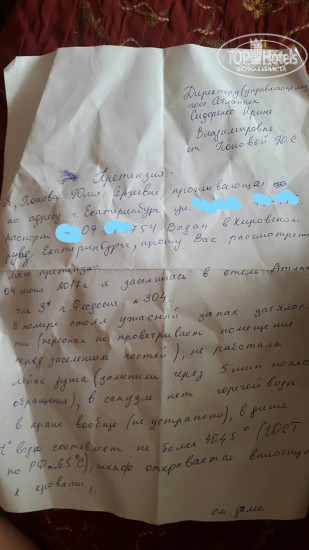 TOPHotels
ФОНД ТУРИСТА
Директору (управляющему)
гост. Атлантик
Сидоренко Ирине
Владимировне
от Поповой Ю.С
Претензия.
Я, Попова Юлия Сергеевна, проживающая
по адресу г. Екатеринбург ул.
паспорт 07 754 Выдан в Кировском
Екатеринбурга, прошу Вас рассмотреть
мою претензию.
04 июня 2017г я заселилась в отель Атлан
тик 3* г Феодосия к 304.
В номере стоял ужасный запах затхлос
ти (персонал не проветривает помещения
перед заселением гостей), не работала
лейка душа (заменили через 5 мин после
обращения), в санузле нет горячей воды
в кране вообще (не устранено), в душе
t° воды составляет не более 40,45° (ГОСТ
по РФ 65°С), шкаф открывается вплотную
к кровати,
см. далее